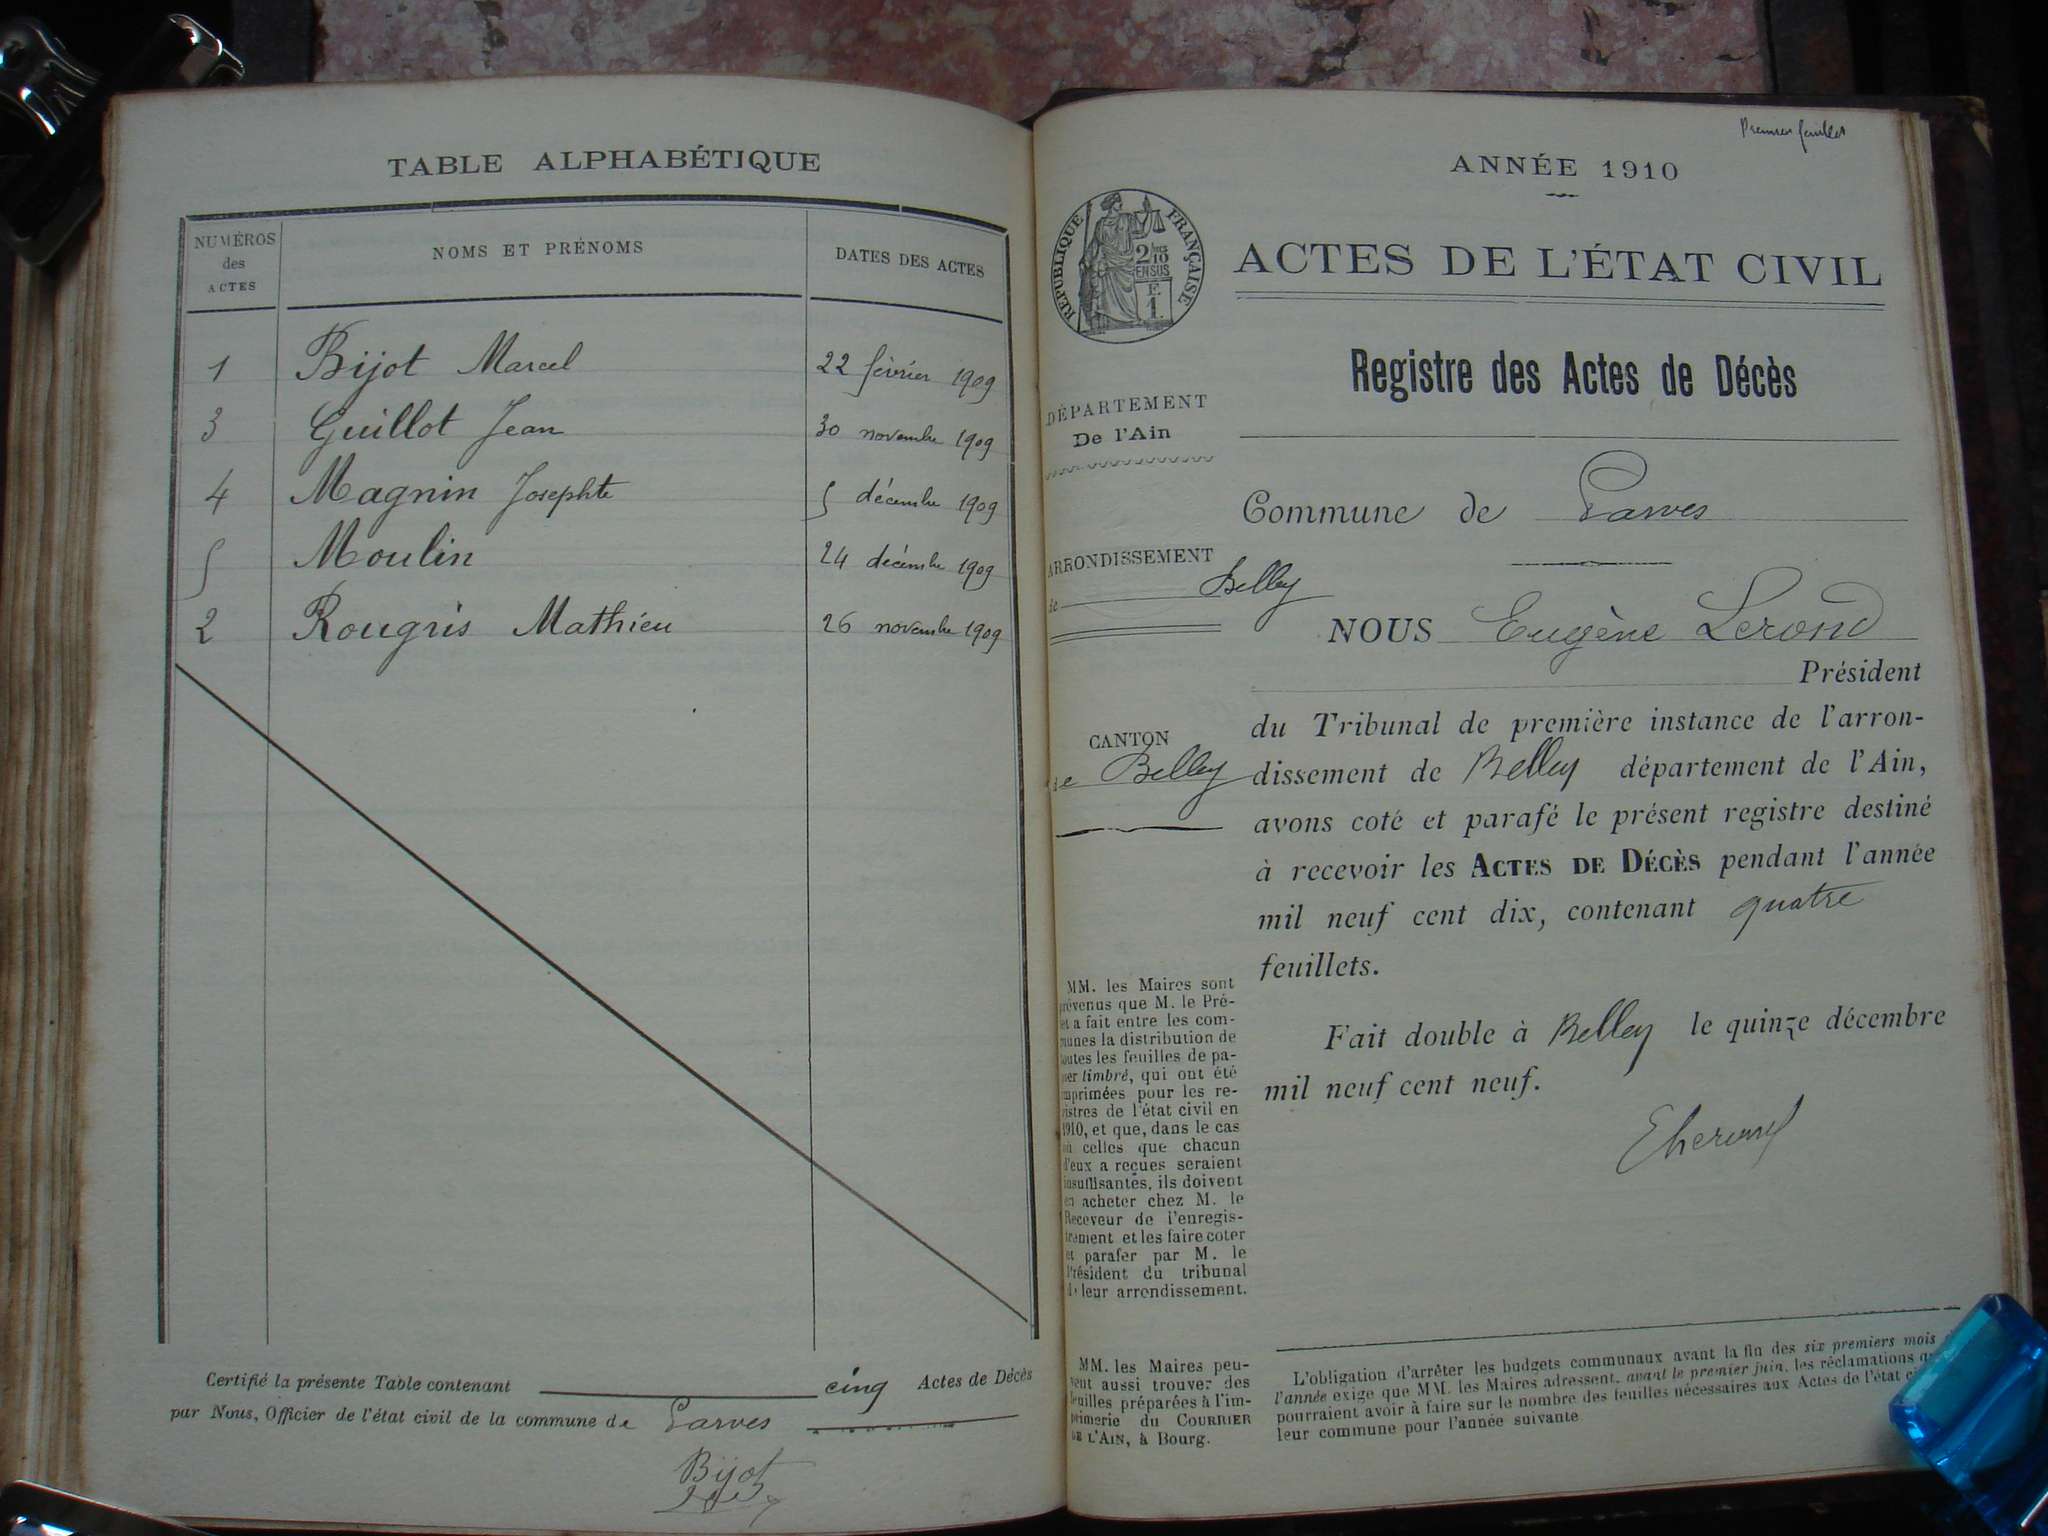 TABLE ALPHABÉTIQUE
NUMÉROS des ACTES NOMS ET PRÉNOMS DATES DES ACTES
1 Bijot Marcel 22 février 1909
3 Guillot Jean 30 novembre 1909
4 Magnin Josephte 5 décembre 1909
5 Moulin 24 décembre 1909
2 Rougris Mathieu 26 novembre 1909
Certifié la présente Table contenant cinq Actes de Décès
par Nous, Officier de l'état civil de la commune de Parves
Bijot
Premier feuillet
ANNÉE 1910
RÉPUBLIQUE FRANÇAISE
2/10
EN SUS
E
1.
ACTES DE L'ÉTAT CIVIL
Registre des Actes de Décès
DÉPARTEMENT
De l'Ain
Commune de Parves
ARRONDISSEMENT
de Belley
NOUS Eugène Lerond
Président
CANTON
de Belley
du Tribunal de première instance de l'arron-
dissement de Belley département de l'Ain,
avons coté et parafé le présent registre destiné
à recevoir les ACTES DE DÉCÈS pendant l'année
mil neuf cent dix, contenant quatre
feuillets.
Fait double à Belley le quinze décembre
mil neuf cent neuf.
MM. les Maires sont
prévenus que M. le Pré-
fet a fait entre les com-
munes la distribution de
toutes les feuilles de pa-
pier timbré, qui ont été
imprimées pour les re-
gistres de l'état civil en
1910, et que, dans le cas
où celles que chacun
d'eux a reçues seraient
insuffisantes, ils doivent
en acheter chez M. le
Receveur de l'enregis-
trement et les faire coter
et parafer par M. le
Président du tribunal
de leur arrondissement.
MM. les Maires peu-
vent aussi trouver des
feuilles préparées à l'im-
primerie du COURRIER
DE L'AIN, à Bourg.
L'obligation d'arrêter les budgets communaux avant la fin des six premiers mois
l'année exige que MM. les Maires adressent, avant le premier juin, les réclamations
pourraient avoir à faire sur le nombre des feuilles nécessaires aux Actes de l'état
leur commune pour l'année suivante